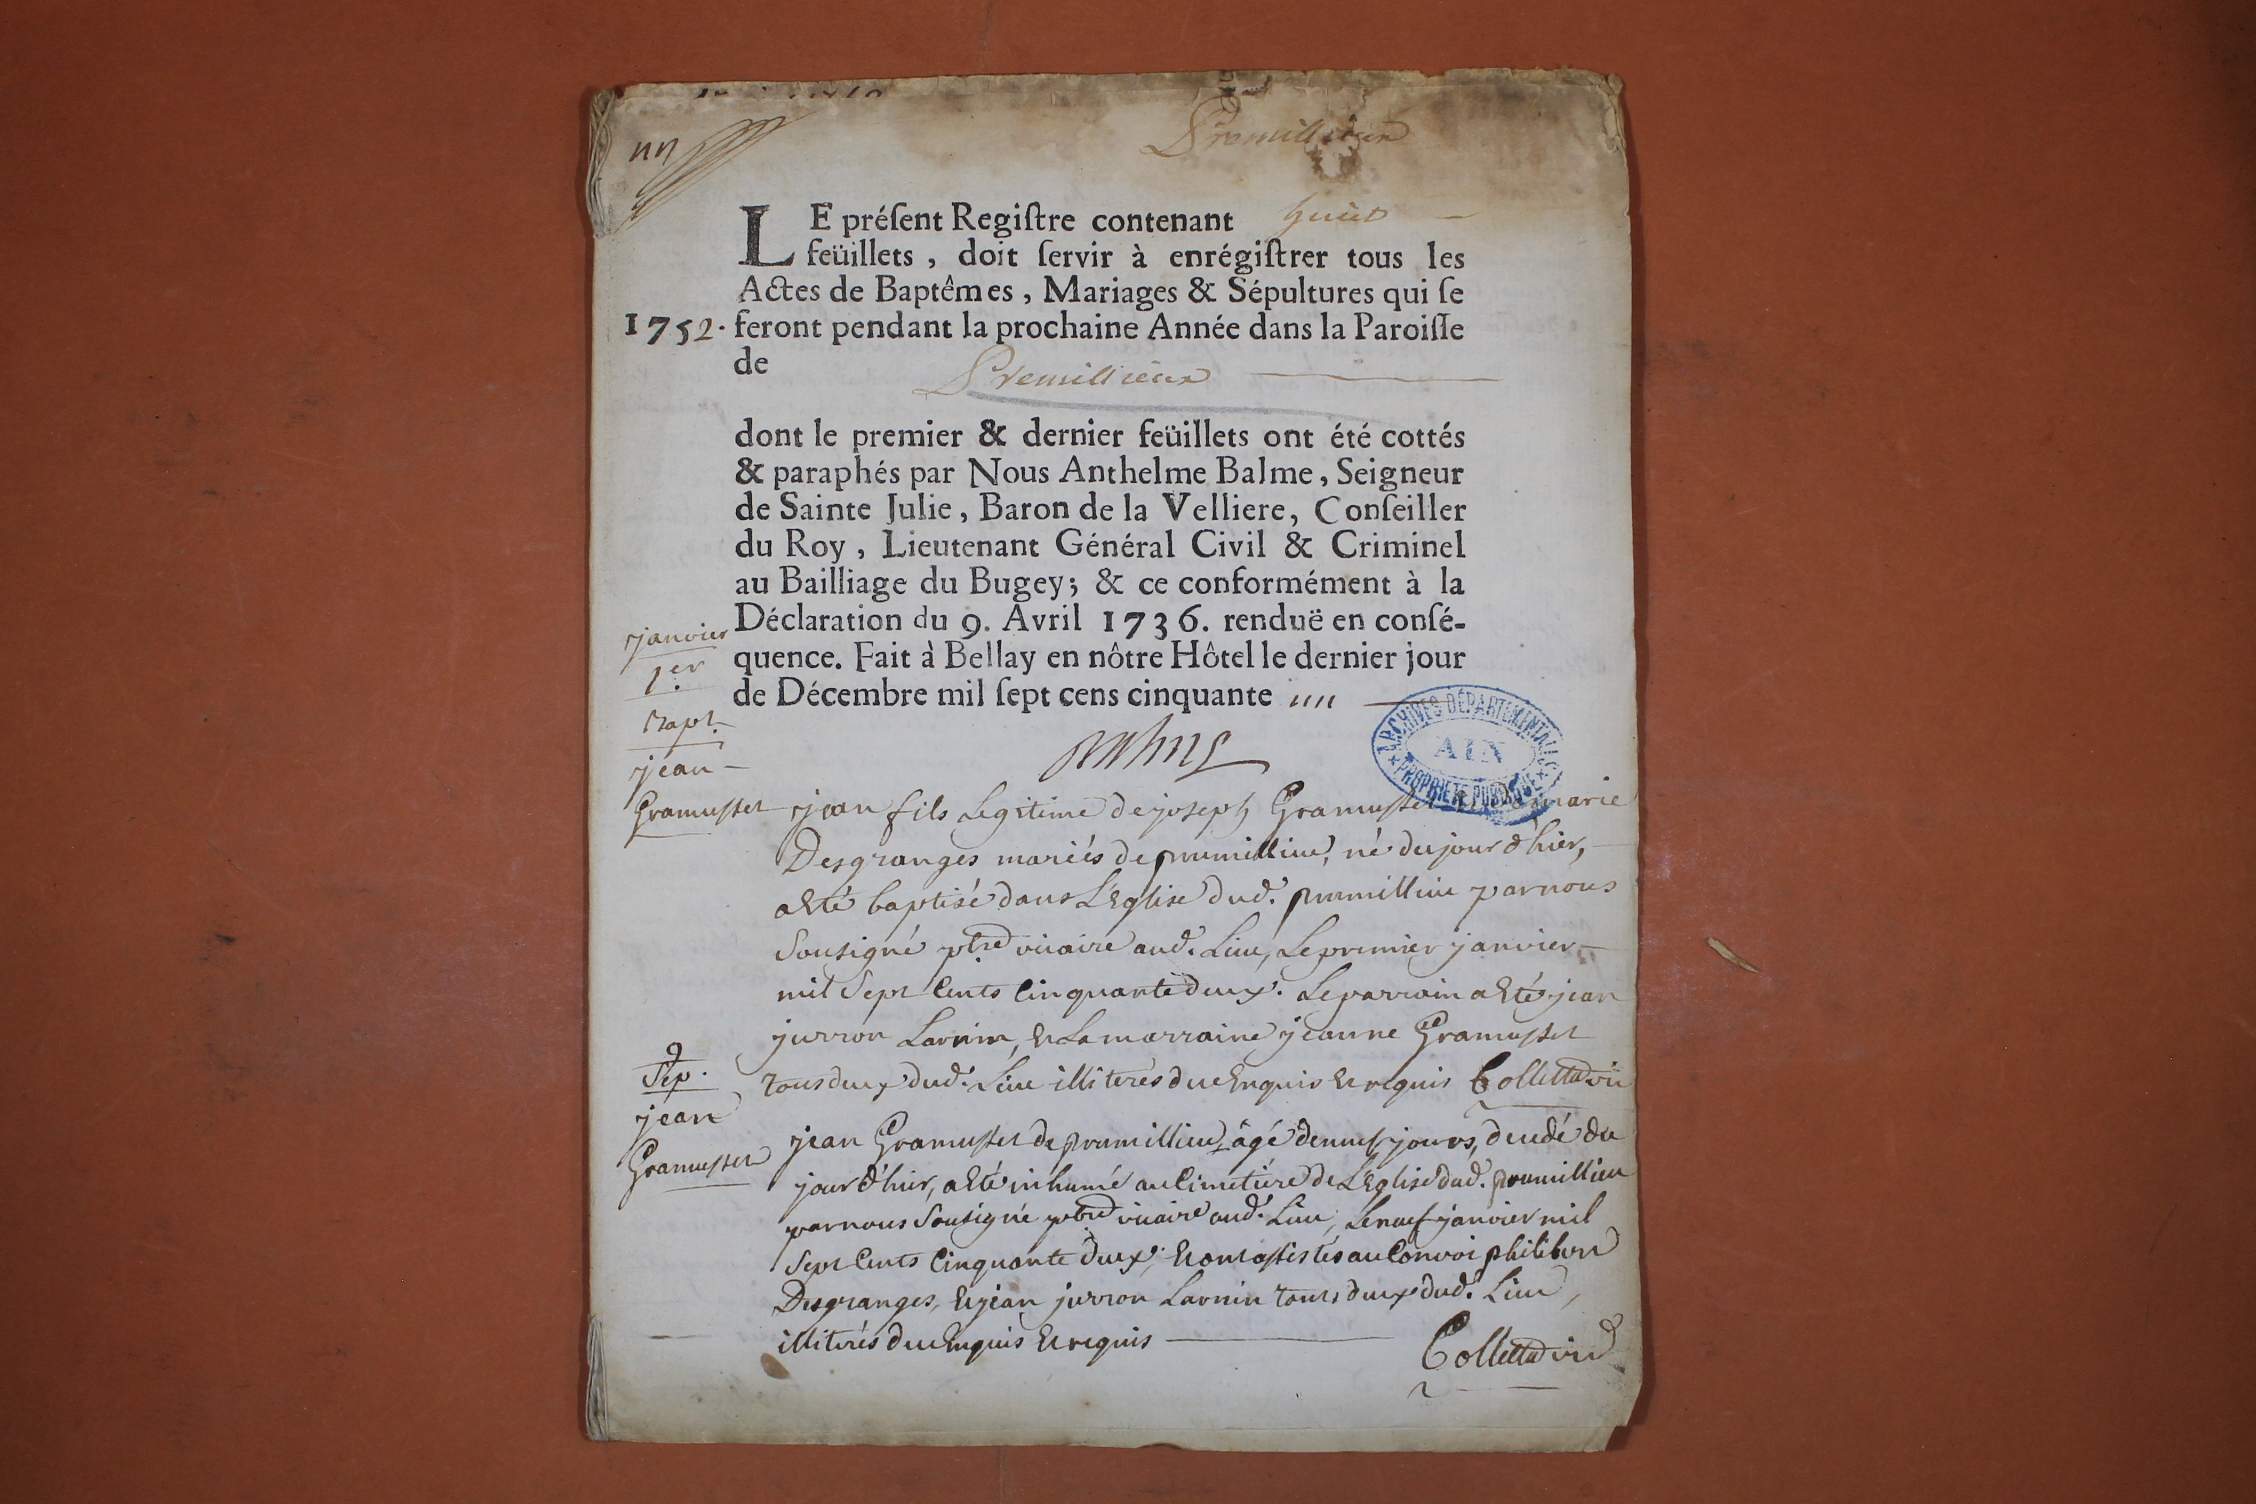 Premillieux
LE préſent Regiſtre contenant huit
feüillets, doit ſervir à enrégiſtrer tous les
Actes de Baptêmes, Mariages & Sépultures qui ſe
1752. feront pendant la prochaine Année dans la Paroiſſe
de Premillieux
dont le premier & dernier feüillets ont été cottés
& paraphés par Nous Anthelme Balme, Seigneur
de Sainte Julie, Baron de la Velliere, Conſeiller
du Roy, Lieutenant Général Civil & Criminel
au Bailliage du Bugey; & ce conformément à la
Déclaration du 9. Avril 1736. renduë en conſé-
quence. Fait à Bellay en nôtre Hôtel le dernier jour
de Décembre mil ſept cens cinquante
ARCHIVES DÉPARTEMENTALES
AIN
PROPRIÉTÉ PUBLIQUE
janvier
1.er
Bapt.
jean
Gramusset
jean fils Legitime de joseph Gramusset marie
Desgranges mariés de prumillieu, né du jour d'hier,
a Eté baptisé dans L'Eglise dud. prumillieu par nous
Sousigné ptre vicaire aud. Lieu, Le premier janvier
mil Sept Cents Cinquante deux. Le parrain a Eté jean
jurron Larnin, et La marraine jeanne Gramusset
tous deux dud. Lieu illiterés de ce Enquis et requis Collettad vic
9
Sep.
jean
Gramusset
jean Gramusset de prumillieu, âgé de neuf jours, decedé du
jour d'hier, a Eté inhumé au Cimetiere de L'Eglise dud. prumillieu
par nous Sousigné ptre vicaire aud. Lieu, Le neuf janvier mil
Sept Cents Cinquante deux; et ont assistés au Convoi philibert
Desgranges, et jean jurron Larnin tous deux dud. Lieu,
illiterés de ce Enquis et requis
Collettad vic